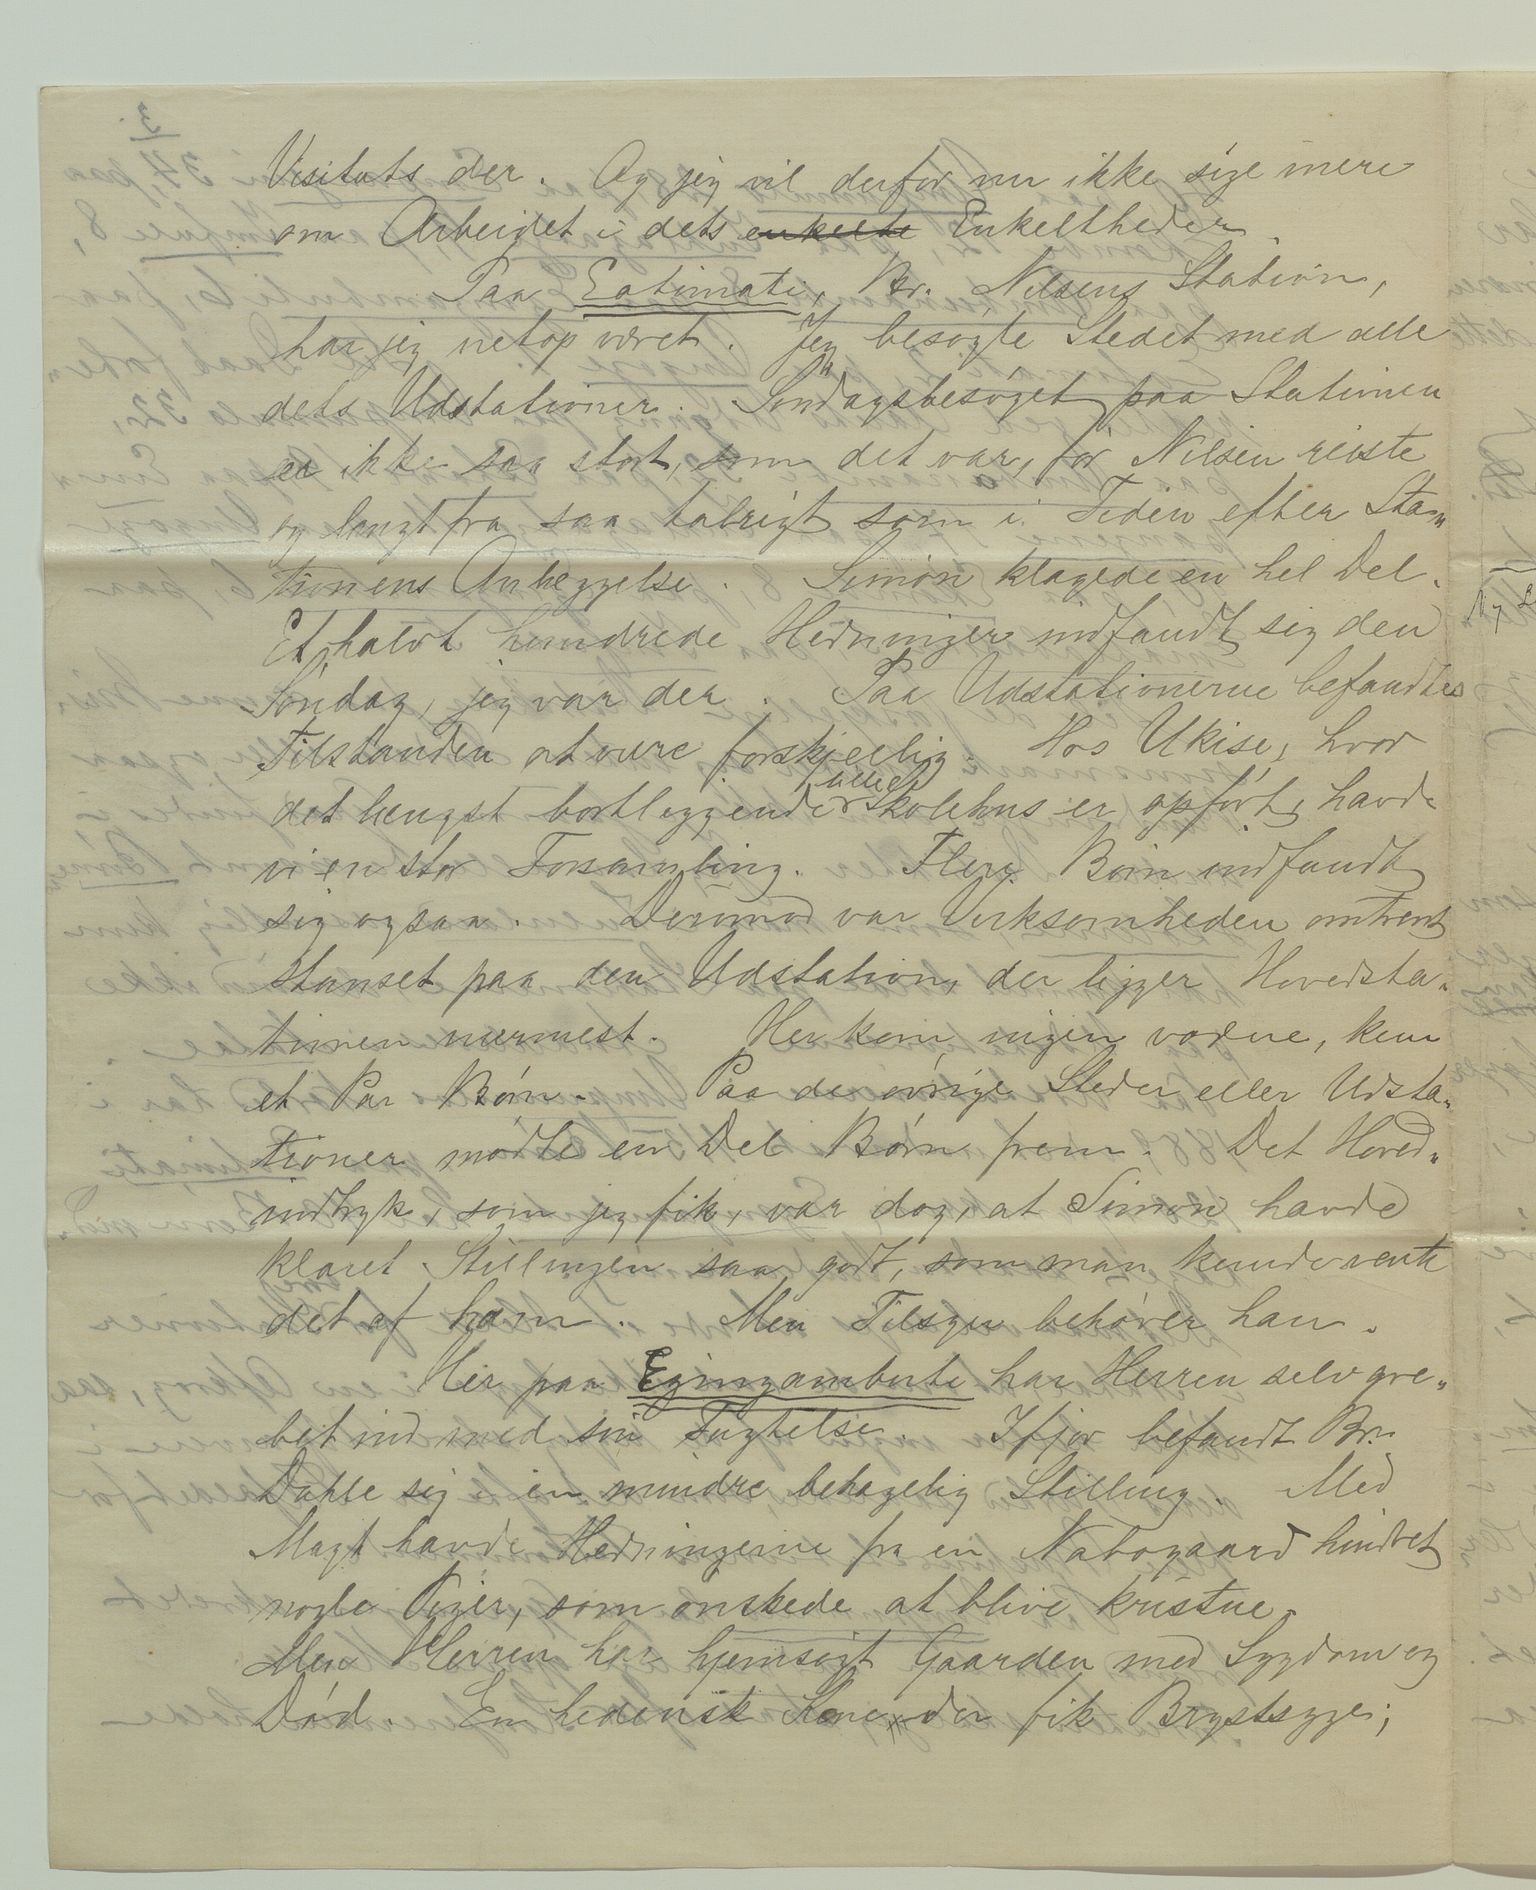 Visitats der. Og jeg vil derfor nu ikke sige mere
om Arbeidet i dets enkelte Enkeltheder.
Paa Eotimati, Br. Nilsens Station,
har jeg netop været. Jeg besøgte Stedet med alle
dets Udstationer. Søndagsbesøget paa Stationen
er ikke saa stort, som det var, før Nilsen reiste
og langt fra saa talrigt som i Tiden efter Sta„
tionens Anlæggelse. Simon klagede en hel Del.
Et halvt hundrede Hedninger indfandt sig den
Søndag, jeg var der. Paa Udstationerne befandtes
Tilstanden at være forskjellig. Hos Ukise, hvor
det længst bortliggende lille Skolehus er opført, havde
vi en stor Forsamling. Flere Børn indfandt
sig ogsaa. Derimod var Virksomheden omtrent
stanset paa den Udstation, der ligger Hovedsta„
tionen nærmest. Her kom ingen voxne, kun
et Par Børn. Paa de øvrige Steder eller Udsta„
tioner mødte en Del Børn frem. Det Hoved„
indtryk, som jeg fik, var dog, at Simon havde
klaret Stillingen saa godt, som man kunde vente
det af ham. Men Tilsyn behøver han.
Her paa Eqinqambuti har Herren selv gre„
bet ind med sin Tugtelse. Ifjor befandt Br.
Dahle sig i en mindre behagelig Stilling. Med
Magt havde Hedningerne fra en Nabogaard hindret
nogle Piger, som ønskede at blive kristne.
Men Herren har hjemsøgt Gaarden med Sygdom og
Død. En hedensk Kone der fik Brystsyge;